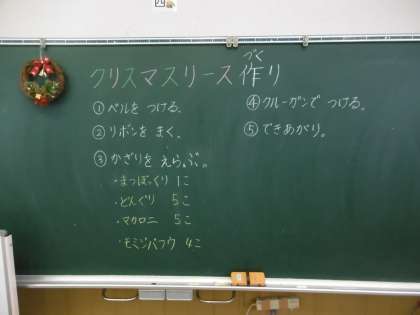 クリスマスリース作り
づく
①ベルを つける。
②リボンを まく。
③かざりを えらぶ。
・まつぼっくり 1こ
・どんぐり 5こ
・マカロニ 5こ
・モミジバフウ 4こ
④グルーガンで つける。
⑤できあがり。